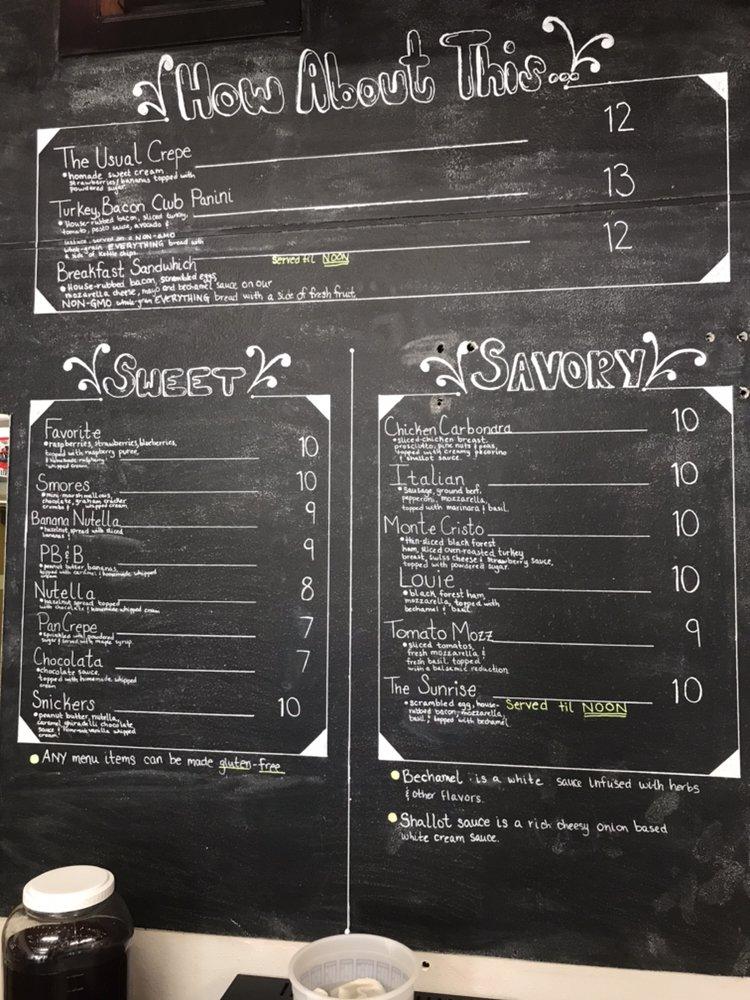 How About This...
The Usual Crepe 12
• homade sweet cream
strawberries/bananas topped with
powdered sugar
Turkey, Bacon Club Panini 13
• House-rubbed bacon, sliced turkey,
tomato, pesto sauce, avocado &
lettuce, served on a NON-GMO
whole-grain EVERYTHING bread with
a side of Kettle chips
Breakfast Sandwhich Served til NOON 12
• House-rubbed bacon, scrambled eggs,
mozarella cheese, mayo and bechamel sauce on our
NON-GMO whole-grain EVERYTHING bread with a side of fresh fruit
SWEET
Favorite 10
• raspberries, strawberries, blueberries,
topped with raspberry puree,
& homemade raspberry
whipped cream
Smores 10
• mini-marshmallows,
chocolate, graham cracker
crumbs & whipped cream
Banana Nutella 9
• hazelnut spread with sliced
bananas
PB&B 9
• peanut butter, bananas,
topped with caramel & homemade whipped
cream
Nutella 8
• hazelnut spread topped
with chocolate & homemade whipped cream
PanCrepe 7
• sprinkled with powdered
sugar & served with maple syrup
Chocolata 7
• chocolate sauce,
topped with homemade whipped
cream
Snickers 10
• peanut butter, nutella,
caramel, ghiradelli chocolate
sauce & vanilla whipped
cream
• ANY menu items can be made gluten-free
SAVORY
Chicken Carbonara 10
• sliced-chicken breast,
prosciutto, pine nuts & peas,
topped with creamy pecorino
& shallot sauce
Italian 10
• Sausage, ground beef,
pepperoni, mozzarella,
topped with marinara & basil
Monte Cristo 10
• thin-sliced black forest
ham, sliced oven-roasted turkey
breast, swiss cheese & strawberry sauce,
topped with powdered sugar
Louie 10
• black forest ham,
mozzarella, topped with
bechamel & basil
Tomato Mozz 9
• sliced tomatos,
fresh mozzarella &
fresh basil topped
with a balsamic reduction
The Sunrise 10
• scrambled egg, house- Served til NOON
rubbed bacon, mozzarella,
basil & topped with bechamel
• Bechamel is a white sauce infused with herbs
& other flavors.
• Shallot sauce is a rich cheesy onion based
white cream sauce.